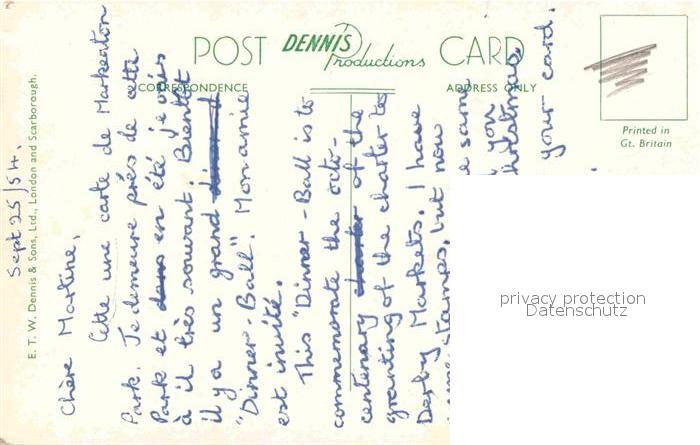 POST CARD
DENNIS Productions
CORRESPONDENCE
ADDRESS ONLY
Printed in
Gt. Britain
E. T. W. Dennis & Sons, Ltd., London and Scarborough.
Sept 25/54.
Chère Martine,
Cette une carte de Markeaton
Park. Je demeure près de cette
Park et dans en été je vais
à il très souvant. Bientôt
il y a un grand
"Dinner-Ball". Mon amie
est invité.
This "Dinner-Ball is to
commemorate the octo-
centenary charter of the
granting of the charter to
Derby Markets. I have
some stamps, but now
e same
you
christmas
your card.
privacy protection
Datenschutz